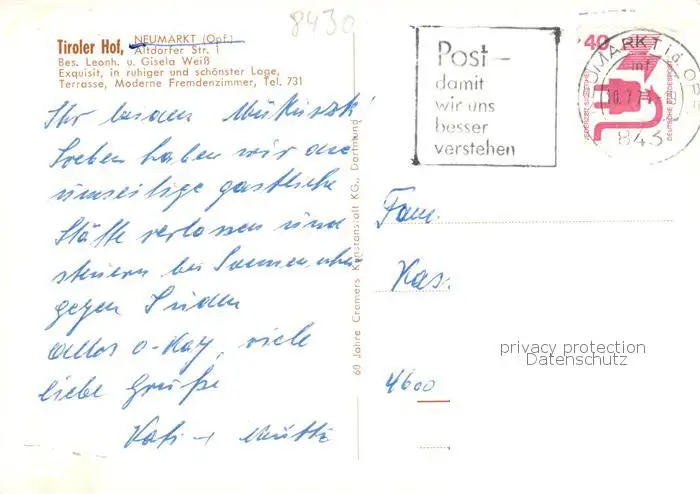 8430
Tiroler Hof, NEUMARKT (Opf.)
Altdorfer Str. 1
Bes. Leonh. u. Gisela Weiß
Exquisit, in ruhiger und schönster Lage,
Terrasse, Moderne Fremdenzimmer, Tel. 731
Ihr beiden
Soeben haben wir die
umseitige gastliche
Stätte verlassen und
steuern bei Sonnenschein
gegen Süden
alles o-kay, viele
liebe Grüße
Kati +
60 Jahre Cramers Kunstanstalt KG., Dortmund
Post–
damit
wir uns
besser
verstehen
40
DEUTSCHE BUNDESPOST
NEUMARKT i.d. OPF
843
Fam.
Kas.
4600
privacy protection
Datenschutz